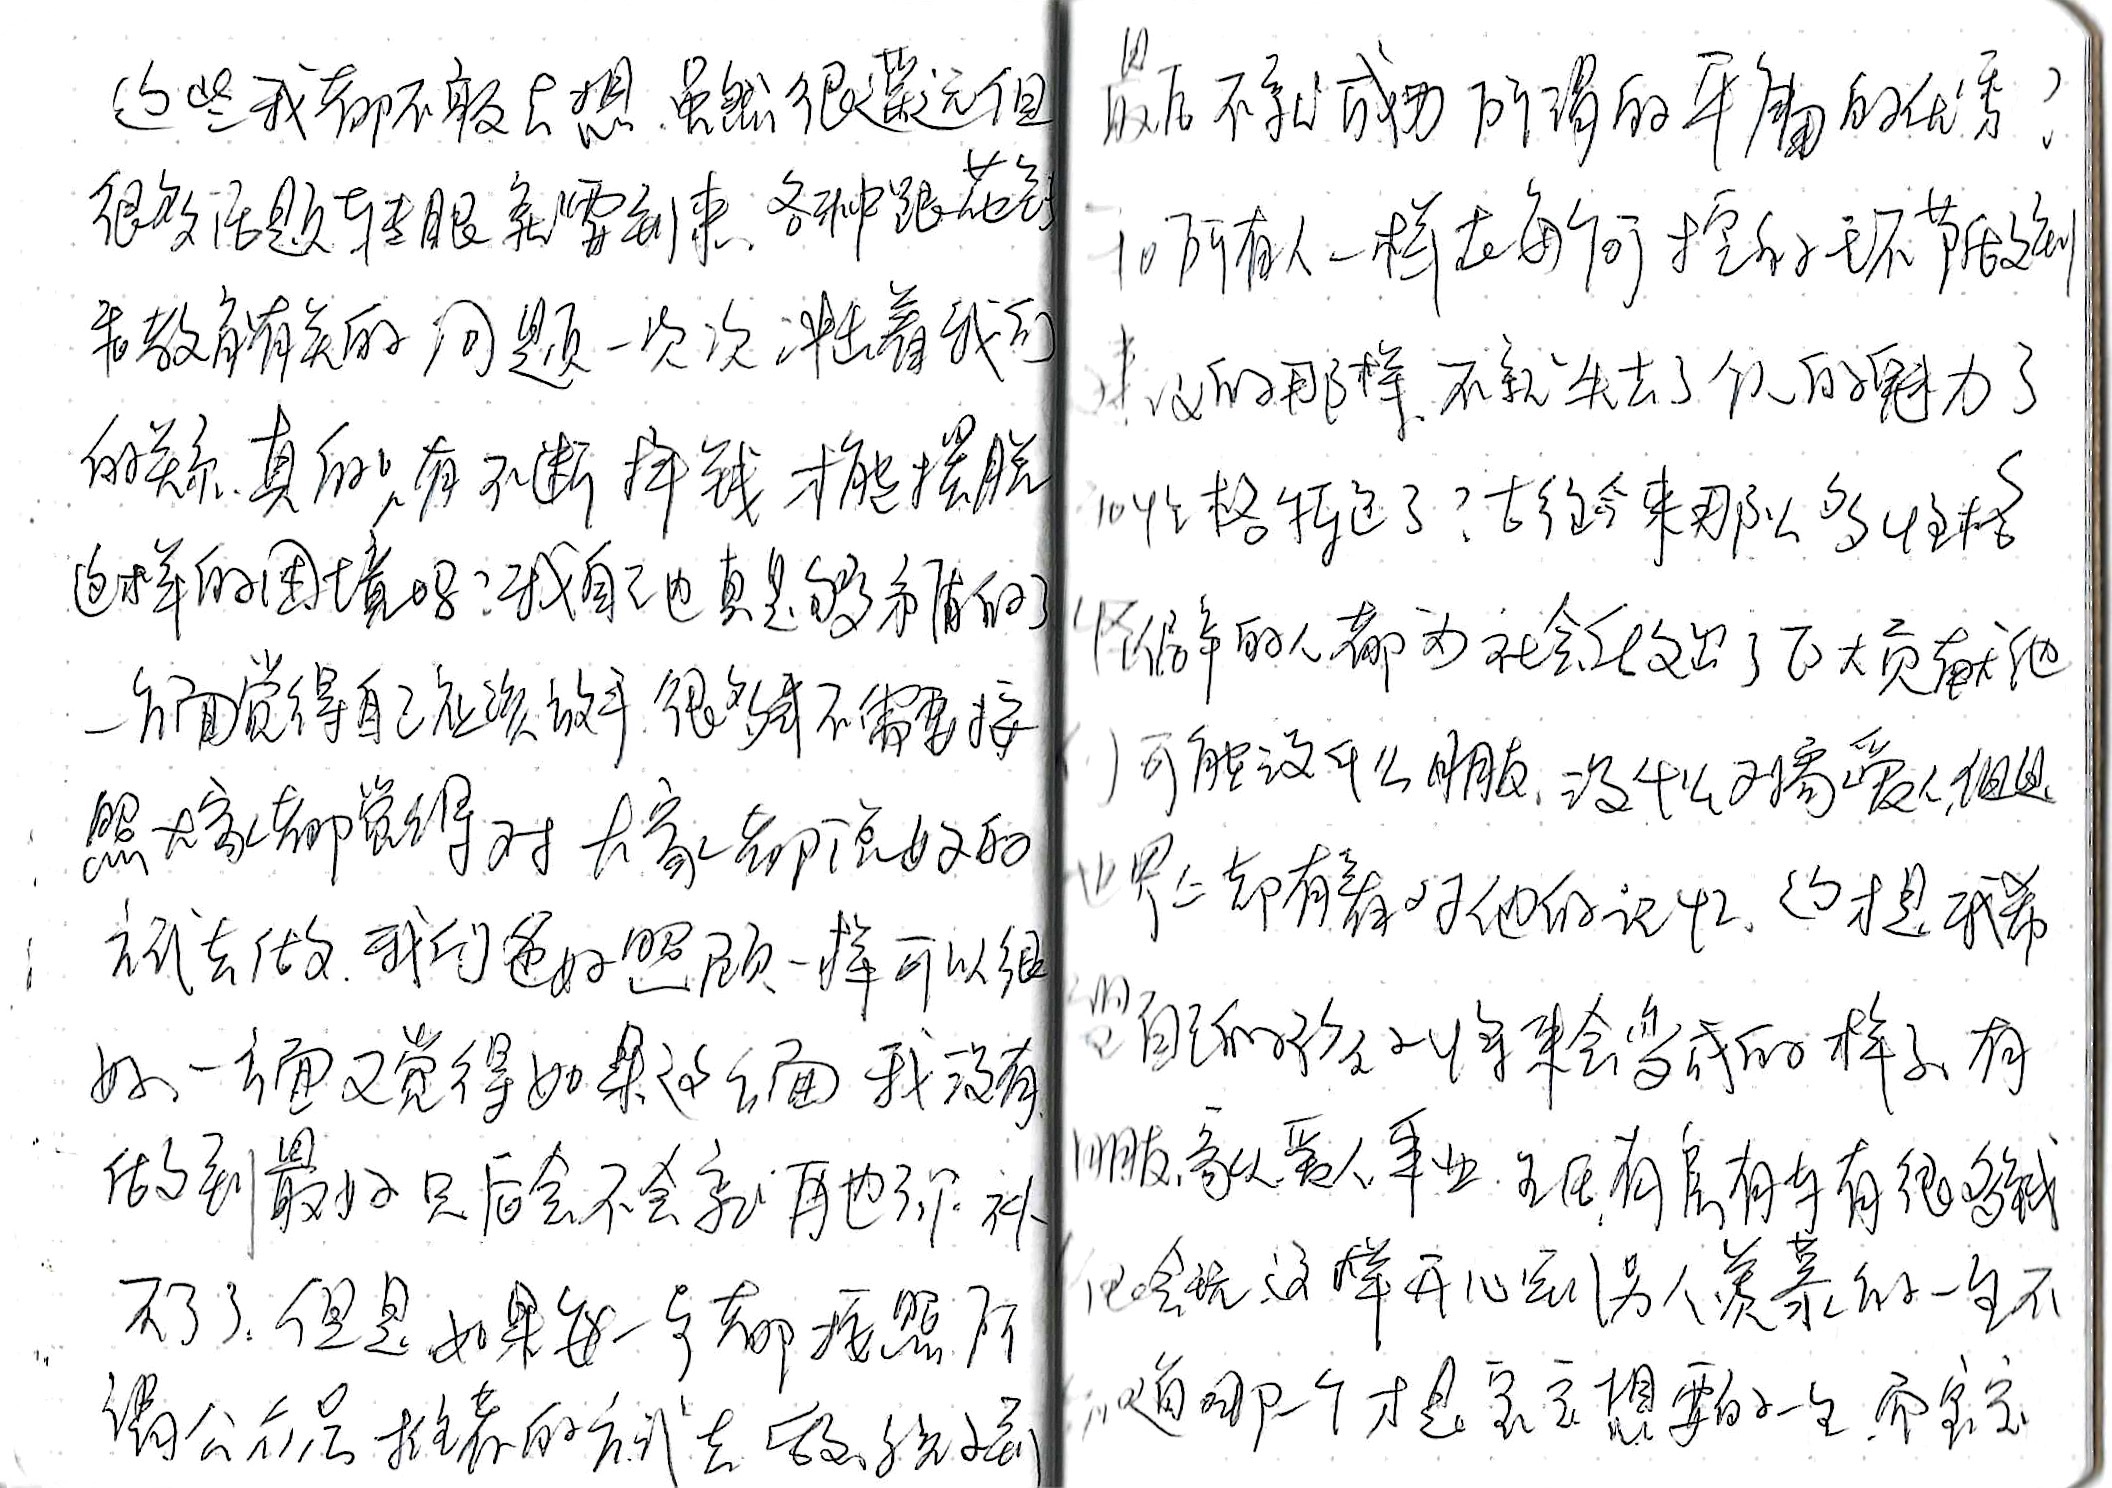 这些我都不敢去想.虽然很遥远但
很多话题转眼就要到来.各种跟花钱
和教育有关的问题一次次冲击着我们
的关系.真的只有不断挣钱才能摆脱
这样的困境吗?我自己也真是够矛盾的了
一方面觉得自己应该放手.很多事不需要按
照大家都觉得对 大家都说好的
方式去做.我们爸好照顾一样可以很
好、一方面又觉得如果这方面我没有
做到最好只后会不会就再也弥补
不了了.但是如果每一步都按照所
谓公众号推荐的方式去做、
最后不就成为所谓的平庸的优秀?
和所有人一样在每个可控的环节做到
建议的那样.不就失去了人的魅力
和性格特色了?古往今来那么多性格
怪僻的人都为社会做出了巨大贡献他
们可能没什么朋友、没什么 爱人.但是
世界上却有着对他的记忆、这才是我希
望自己的孩子将来会变成的样子、有
朋友、家人、爱人、事业 生活.有房有车有很多钱
但会玩 这样开心到另人羡慕的一生不
知道哪一个才是宝宝想要的一生.而宝宝